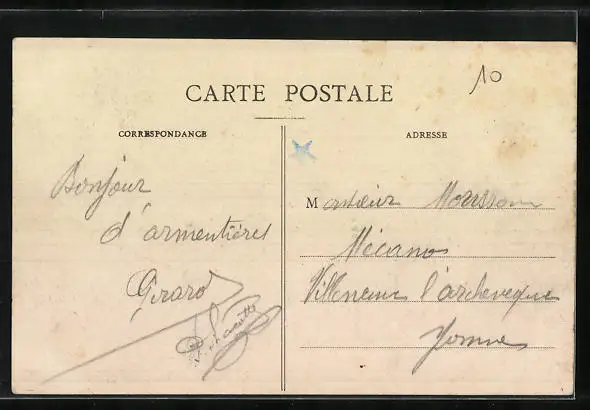 10
CARTE POSTALE
CORRESPONDANCE
ADRESSE
Bonjour
d'armentières
Girard
Monsieur
Mécano
Villeneuve l'archeveque
Yonne